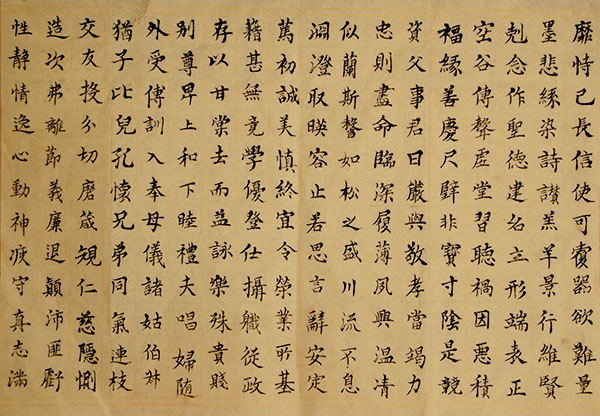 靡恃己長信使可覆器欲難量
墨悲絲染詩讃羔羊景行維賢
剋念作聖德建名立形端表正
空谷傳聲虛堂習聽禍因惡積
福緣善慶尺璧非寶寸陰是競
資父事君曰嚴與敬孝當竭力
忠則盡命臨深履薄夙興溫凊
似蘭斯馨如松之盛川流不息
淵澄取暎容止若思言辭安定
篤初誠美慎終宜令榮業所基
籍甚無竟學優登仕攝職從政
存以甘棠去而益詠樂殊貴賤
別尊卑上和下睦禮夫唱婦隨
外受傅訓入奉母儀諸姑伯叔
猶子比兒孔懷兄弟同氣連枝
交友投分切磨箴規仁慈隱惻
造次弗離節義廉退顛沛匪虧
性靜情逸心動神疲守真志滿